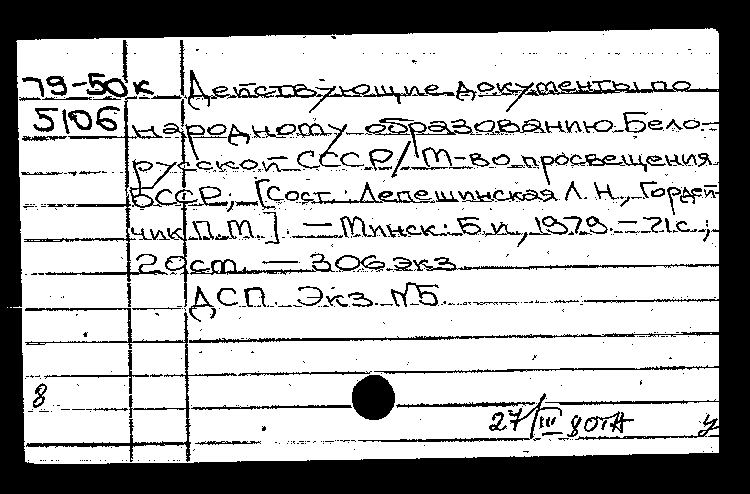 79-50к Действующие документы по
5106 народному образованию Бело-
русской СССР/М-во просвещения
БССР; [Сост.: Лепешинская Л. Н., Гордей-
чик П.М.]. — Минск: Б.и, 1979. — 71с.;
20ст. — 306 экз
ДСП. Экз. №5
8
27/III 80
у